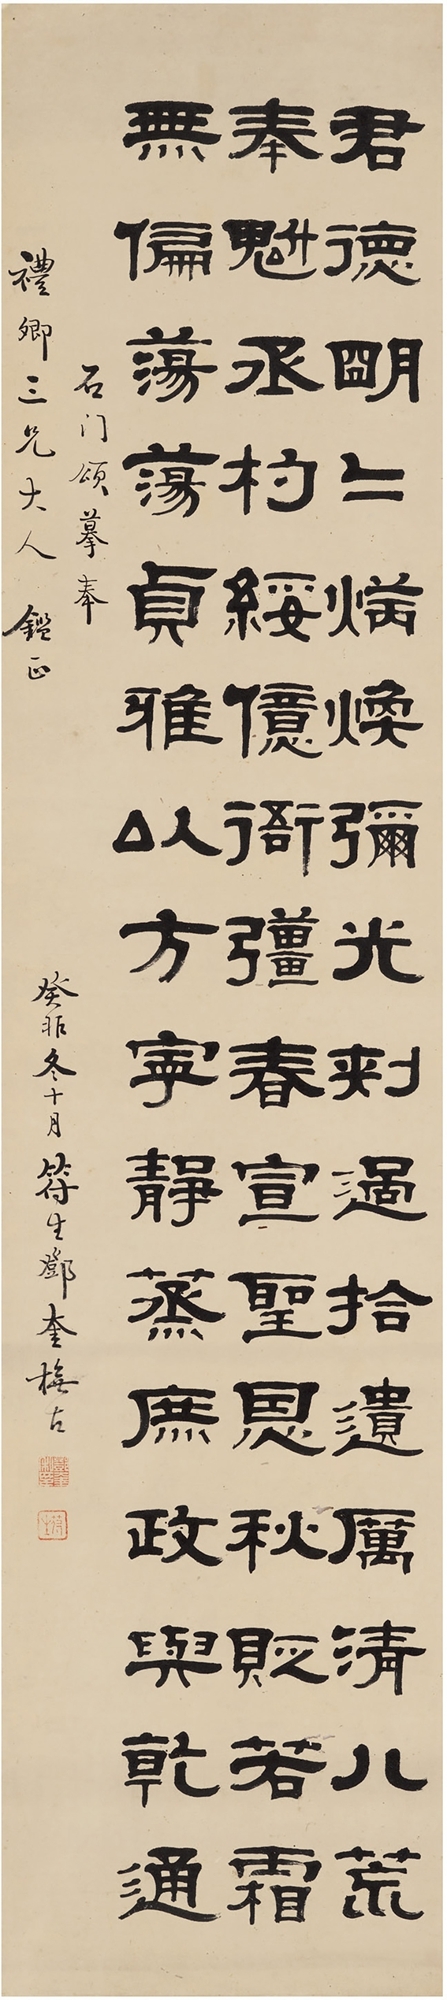 君德明二炳煥彌光刺過拾遺厲清八荒
奉魁丞杓綏億衙彊春宣聖恩秋貶若霜
無偏蕩蕩貞雅以方寧靜蒸庶政與乾通
石门頌摹奉
禮卿三兄大人 鑑正
癸
冬十月符生鄧奎橅古